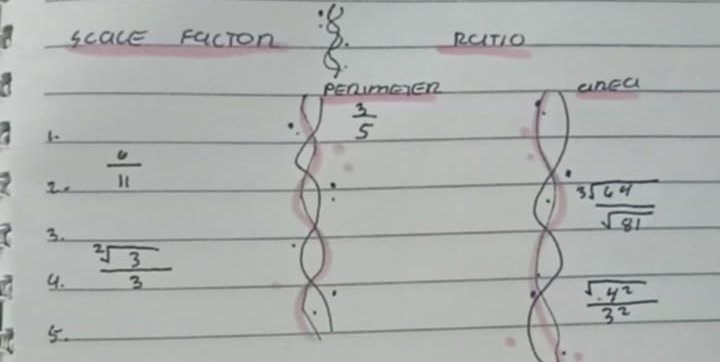 SCALE FACTOR RATIO
PERIMETER AREA
1. 3/5
2. 6/11 ³√64/√81
3.
4. ²√3/3 √4²/3²
5.